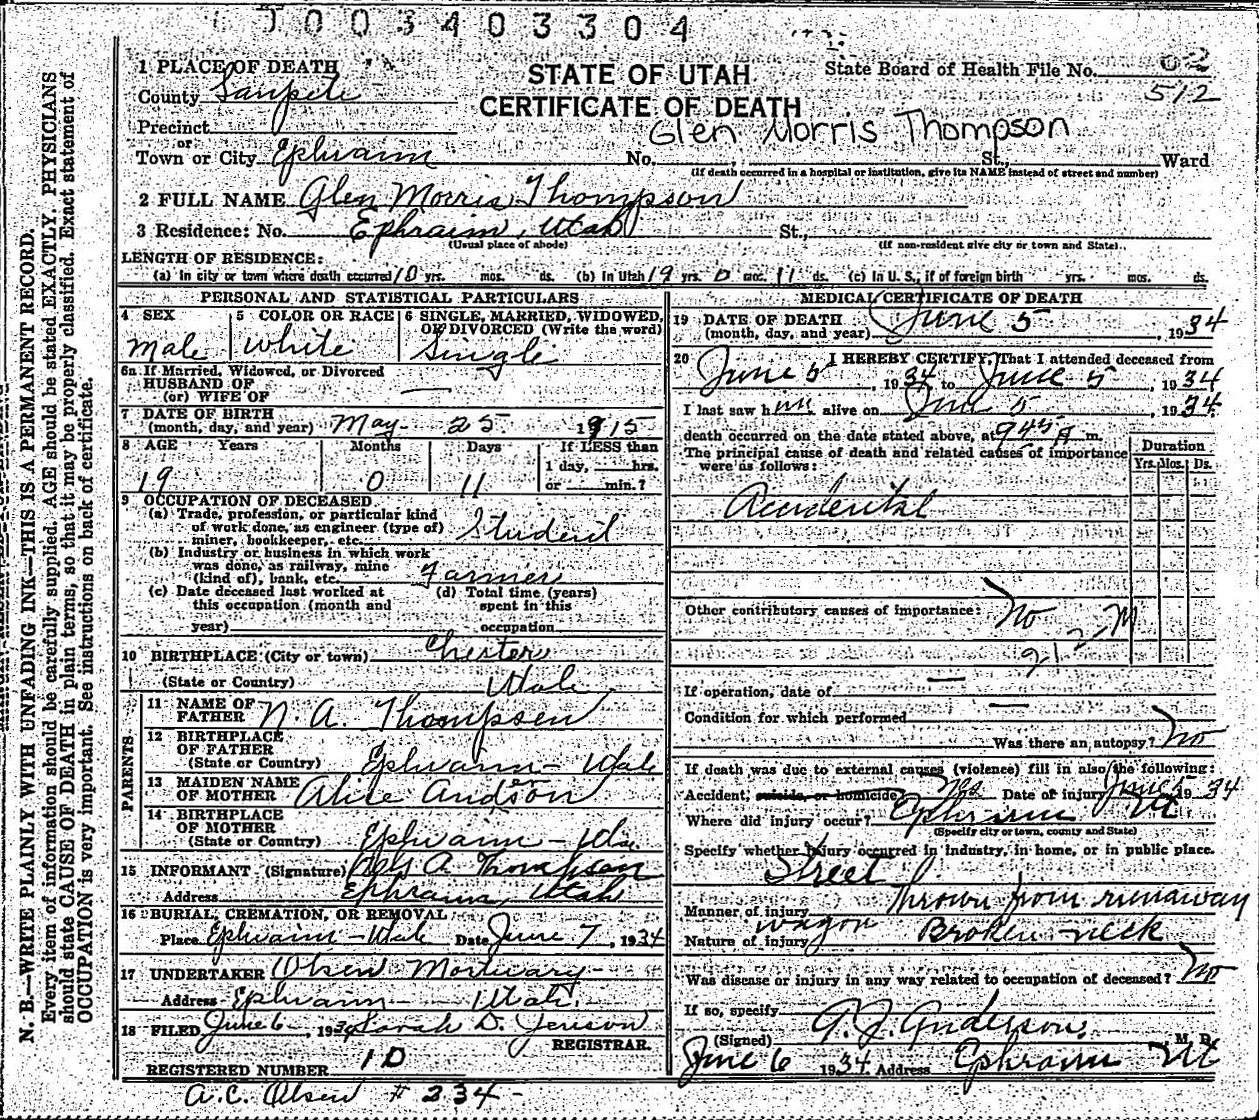 J003403304
1 PLACE OF DEATH
STATE OF UTAH
State Board of Health File No. 62
County Sanpete
CERTIFICATE OF DEATH
512
Precinct
Glen Morris Thompson
or
Town or City Ephraim No. , St., Ward
(If death occurred in a hospital or institution, give its NAME instead of street and number)
2 FULL NAME Glen Morris Thompson
3 Residence: No. Ephraim, Utah St.,
(Usual place of abode) (If non-resident give city or town and State)
LENGTH OF RESIDENCE:
(a) In city or town where death occurred 10 yrs. mos. ds. (b) In Utah 19 yrs. 0 mos. 11 ds. (c) In U. S., if of foreign birth yrs. mos. ds.
PERSONAL AND STATISTICAL PARTICULARS
4 SEX 5 COLOR OR RACE 6 SINGLE, MARRIED, WIDOWED,
OR DIVORCED (Write the word)
Male white Single
6a If Married, Widowed, or Divorced
HUSBAND OF
(or) WIFE OF —
7 DATE OF BIRTH
(month, day, and year) May 25 1915
8 AGE Years Months Days If LESS than
1 day, hrs.
19 0 11 or min.?
9 OCCUPATION OF DECEASED
(a) Trade, profession, or particular kind
of work done, as engineer (type of)
miner, bookkeeper, etc. Student
(b) Industry or business in which work
was done, as railway, mine
(kind of), bank, etc. Farmer
(c) Date deceased last worked at (d) Total time (years)
this occupation (month and spent in this
year) occupation
10 BIRTHPLACE (City or town) Chester
(State or Country) Utah
PARENTS
11 NAME OF
FATHER N. A. Thompsen
12 BIRTHPLACE
OF FATHER
(State or Country) Ephraim - Utah
13 MAIDEN NAME
OF MOTHER Alice Anderson
14 BIRTHPLACE
OF MOTHER
(State or Country) Ephraim - Utah
15 INFORMANT (Signature) Nels A. Thompson
Address Ephraim, Utah
16 BURIAL, CREMATION, OR REMOVAL
Place Ephraim - Utah Date June 7, 1934
17 UNDERTAKER Olsen Mortuary
Address Ephraim - Utah
18 FILED June 6, 1934 Sarah D. Jenson
REGISTRAR.
REGISTERED NUMBER 10
A.C. Olsen # 234 -
MEDICAL CERTIFICATE OF DEATH
19 DATE OF DEATH
(month, day, and year) June 5, 1934
20 I HEREBY CERTIFY, That I attended deceased from
June 5, 1934 to June 5, 1934
I last saw him alive on June 5, 1934
death occurred on the date stated above, at 945 A m.
The principal cause of death and related causes of importance
were as follows:
Duration
Yrs. Mos. Ds.
Accidental
Other contributory causes of importance: No
212 M
If operation, date of —
Condition for which performed —
Was there an autopsy? No
If death was due to external causes (violence) fill in also the following:
Accident, suicide, or homicide Yes Date of injury June 5 1934
Where did injury occur? Ephraim Ut
(Specify city or town, county and State)
Specify whether injury occurred in industry, in home, or in public place.
Street
Manner of injury Thrown from runaway
wagon
Nature of injury Broken neck
Was disease or injury in any way related to occupation of deceased? No
If so, specify
(Signed) A. J. Anderson, M. D.
June 6 1934 Address Ephraim Ut
N. B.—WRITE PLAINLY WITH UNFADING INK—THIS IS A PERMANENT RECORD.
Every item of information should be carefully supplied. AGE should be stated EXACTLY. PHYSICIANS
should state CAUSE OF DEATH in plain terms, so that it may be properly classified. Exact statement of
OCCUPATION is very important. See instructions on back of certificate.